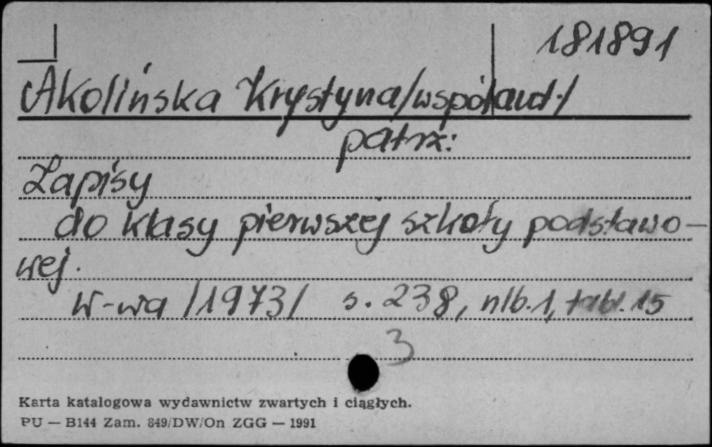 181891
Akolińska Krystyna/współaut./
patrz:
Zapisy
do klasy pierwszej szkoły podstawo-
wej.
W-wa /1973/ s. 238, nlb. 1, tabl. 15
3
Karta katalogowa wydawnictw zwartych i ciągłych.
PU — B144 Zam. 849/DW/On ZGG — 1991